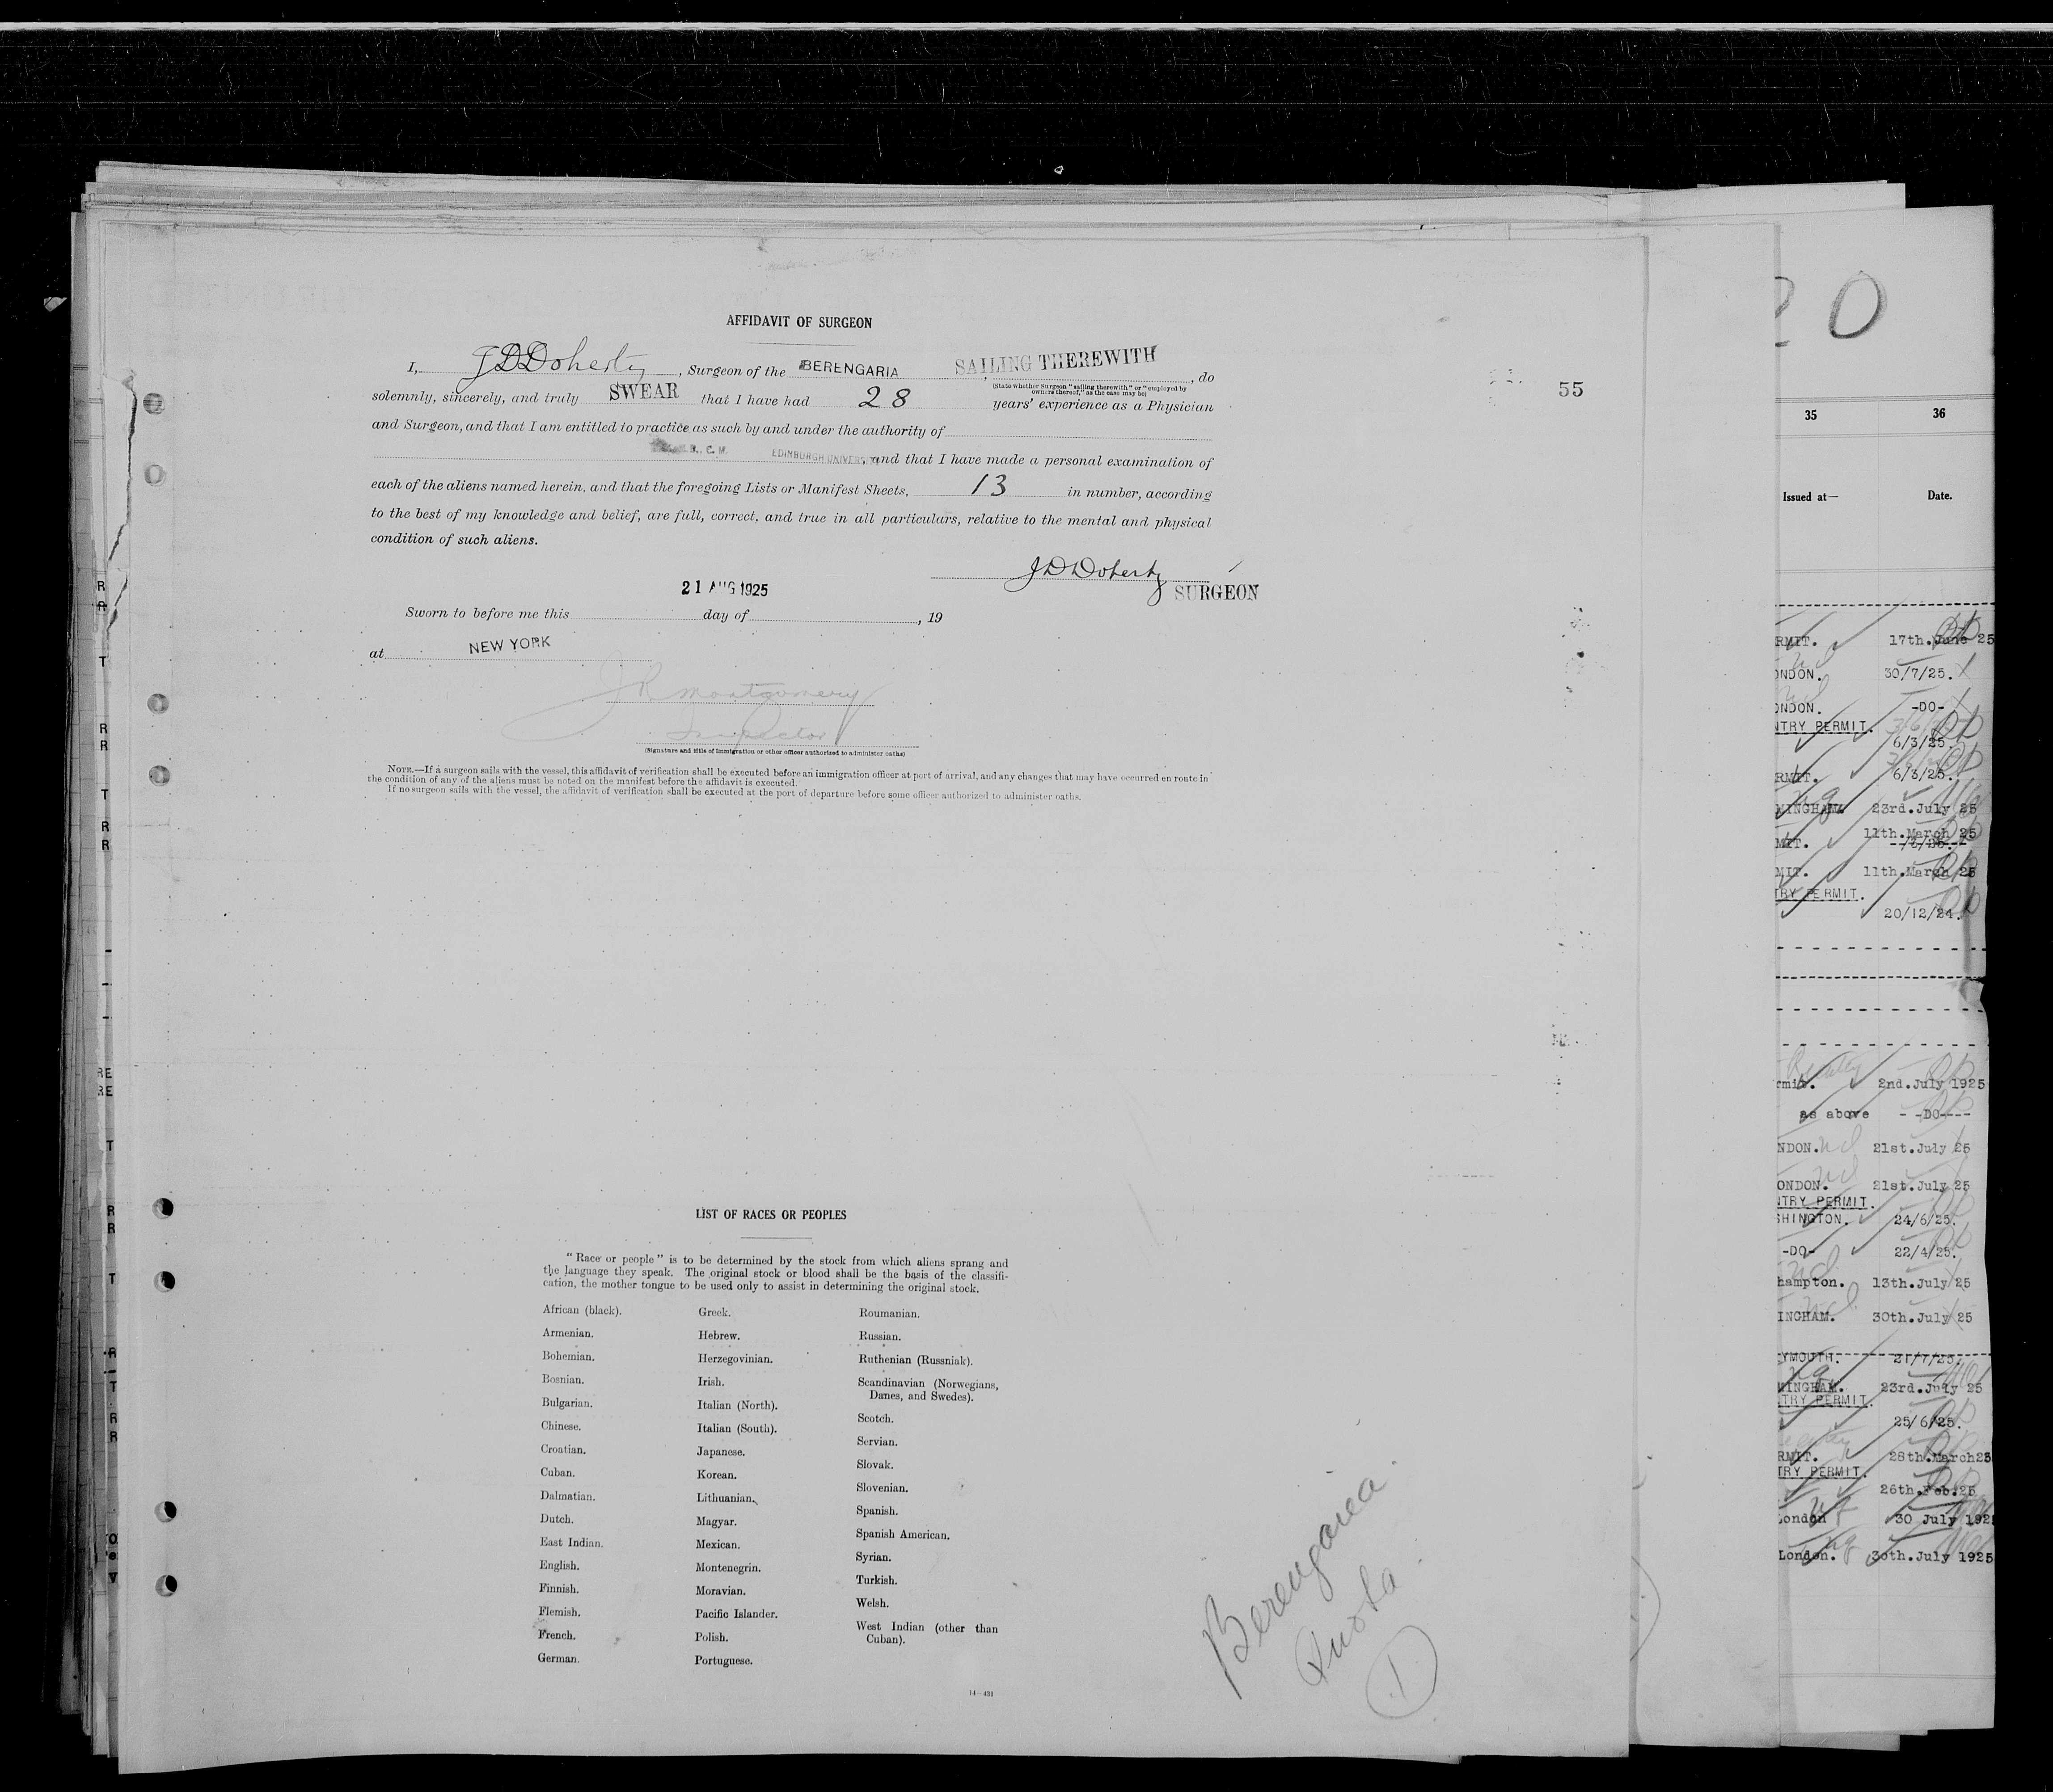 AFFIDAVIT OF SURGEON
I, J D Doherty, Surgeon of the BERENGARIA SAILING THEREWITH, do
(State whether Surgeon "sailing therewith" or "employed by owners thereof," as the case may be)
solemnly, sincerely, and truly SWEAR that I have had 28 years' experience as a Physician
and Surgeon, and that I am entitled to practice as such by and under the authority of
C. M. EDINBURGH UNIVERSITY, and that I have made a personal examination of
each of the aliens named herein, and that the foregoing Lists or Manifest Sheets, 13 in number, according
to the best of my knowledge and belief, are full, correct, and true in all particulars, relative to the mental and physical
condition of such aliens.
J D Doherty
SURGEON
21 AUG 1925
Sworn to before me this day of , 19
at NEW YORK
J R Montgomery
Inspector
(Signature and title of immigration or other officer authorized to administer oaths)
NOTE.—If a surgeon sails with the vessel, this affidavit of verification shall be executed before an immigration officer at port of arrival, and any changes that may have occurred en route in
the condition of any of the aliens must be noted on the manifest before the affidavit is executed.
If no surgeon sails with the vessel, the affidavit of verification shall be executed at the port of departure before some officer authorized to administer oaths.
55
LIST OF RACES OR PEOPLES
"Race or people" is to be determined by the stock from which aliens sprang and
the language they speak. The original stock or blood shall be the basis of the classifi-
cation, the mother tongue to be used only to assist in determining the original stock.
African (black).
Armenian.
Bohemian.
Bosnian.
Bulgarian.
Chinese.
Croatian.
Cuban.
Dalmatian.
Dutch.
East Indian.
English.
Finnish.
Flemish.
French.
German.
Greek.
Hebrew.
Herzegovinian.
Irish.
Italian (North).
Italian (South).
Japanese.
Korean.
Lithuanian.
Magyar.
Mexican.
Montenegrin.
Moravian.
Pacific Islander.
Polish.
Portuguese.
Roumanian.
Russian.
Ruthenian (Russniak).
Scandinavian (Norwegians,
Danes, and Swedes).
Scotch.
Servian.
Slovak.
Slovenian.
Spanish.
Spanish American.
Syrian.
Turkish.
Welsh.
West Indian (other than
Cuban).
14—431
Berengaria
Quota
1
20
35 36
Issued at— Date.
RMIT. 17th.June 25
ONDON. 30/7/25.
ONDON. -DO-
NTRY PERMIT.
6/3/25.
RMIT. 6/3/25.
MINGHAM 23rd.July 25
11th.March 25
MIT.
MIT. 11th.March 25
TRY PERMIT.
20/12/24.
rmit. 2nd.July 1925
as above - -DO----
NDON. 21st.July 25
ONDON. 21st.July 25
NTRY PERMIT.
SHINGTON. 24/6/25.
-DO- 22/4/25.
hampton. 13th.July 25
INGHAM. 30th.July 25
YMOUTH. 21/7/25.
MINGHAM. 23rd.July 25
TRY PERMIT.
25/6/25.
RMIT. 28th.March25
TRY PERMIT.
26th.Feb.25
London 30 July 192
London. 30th.July 1925